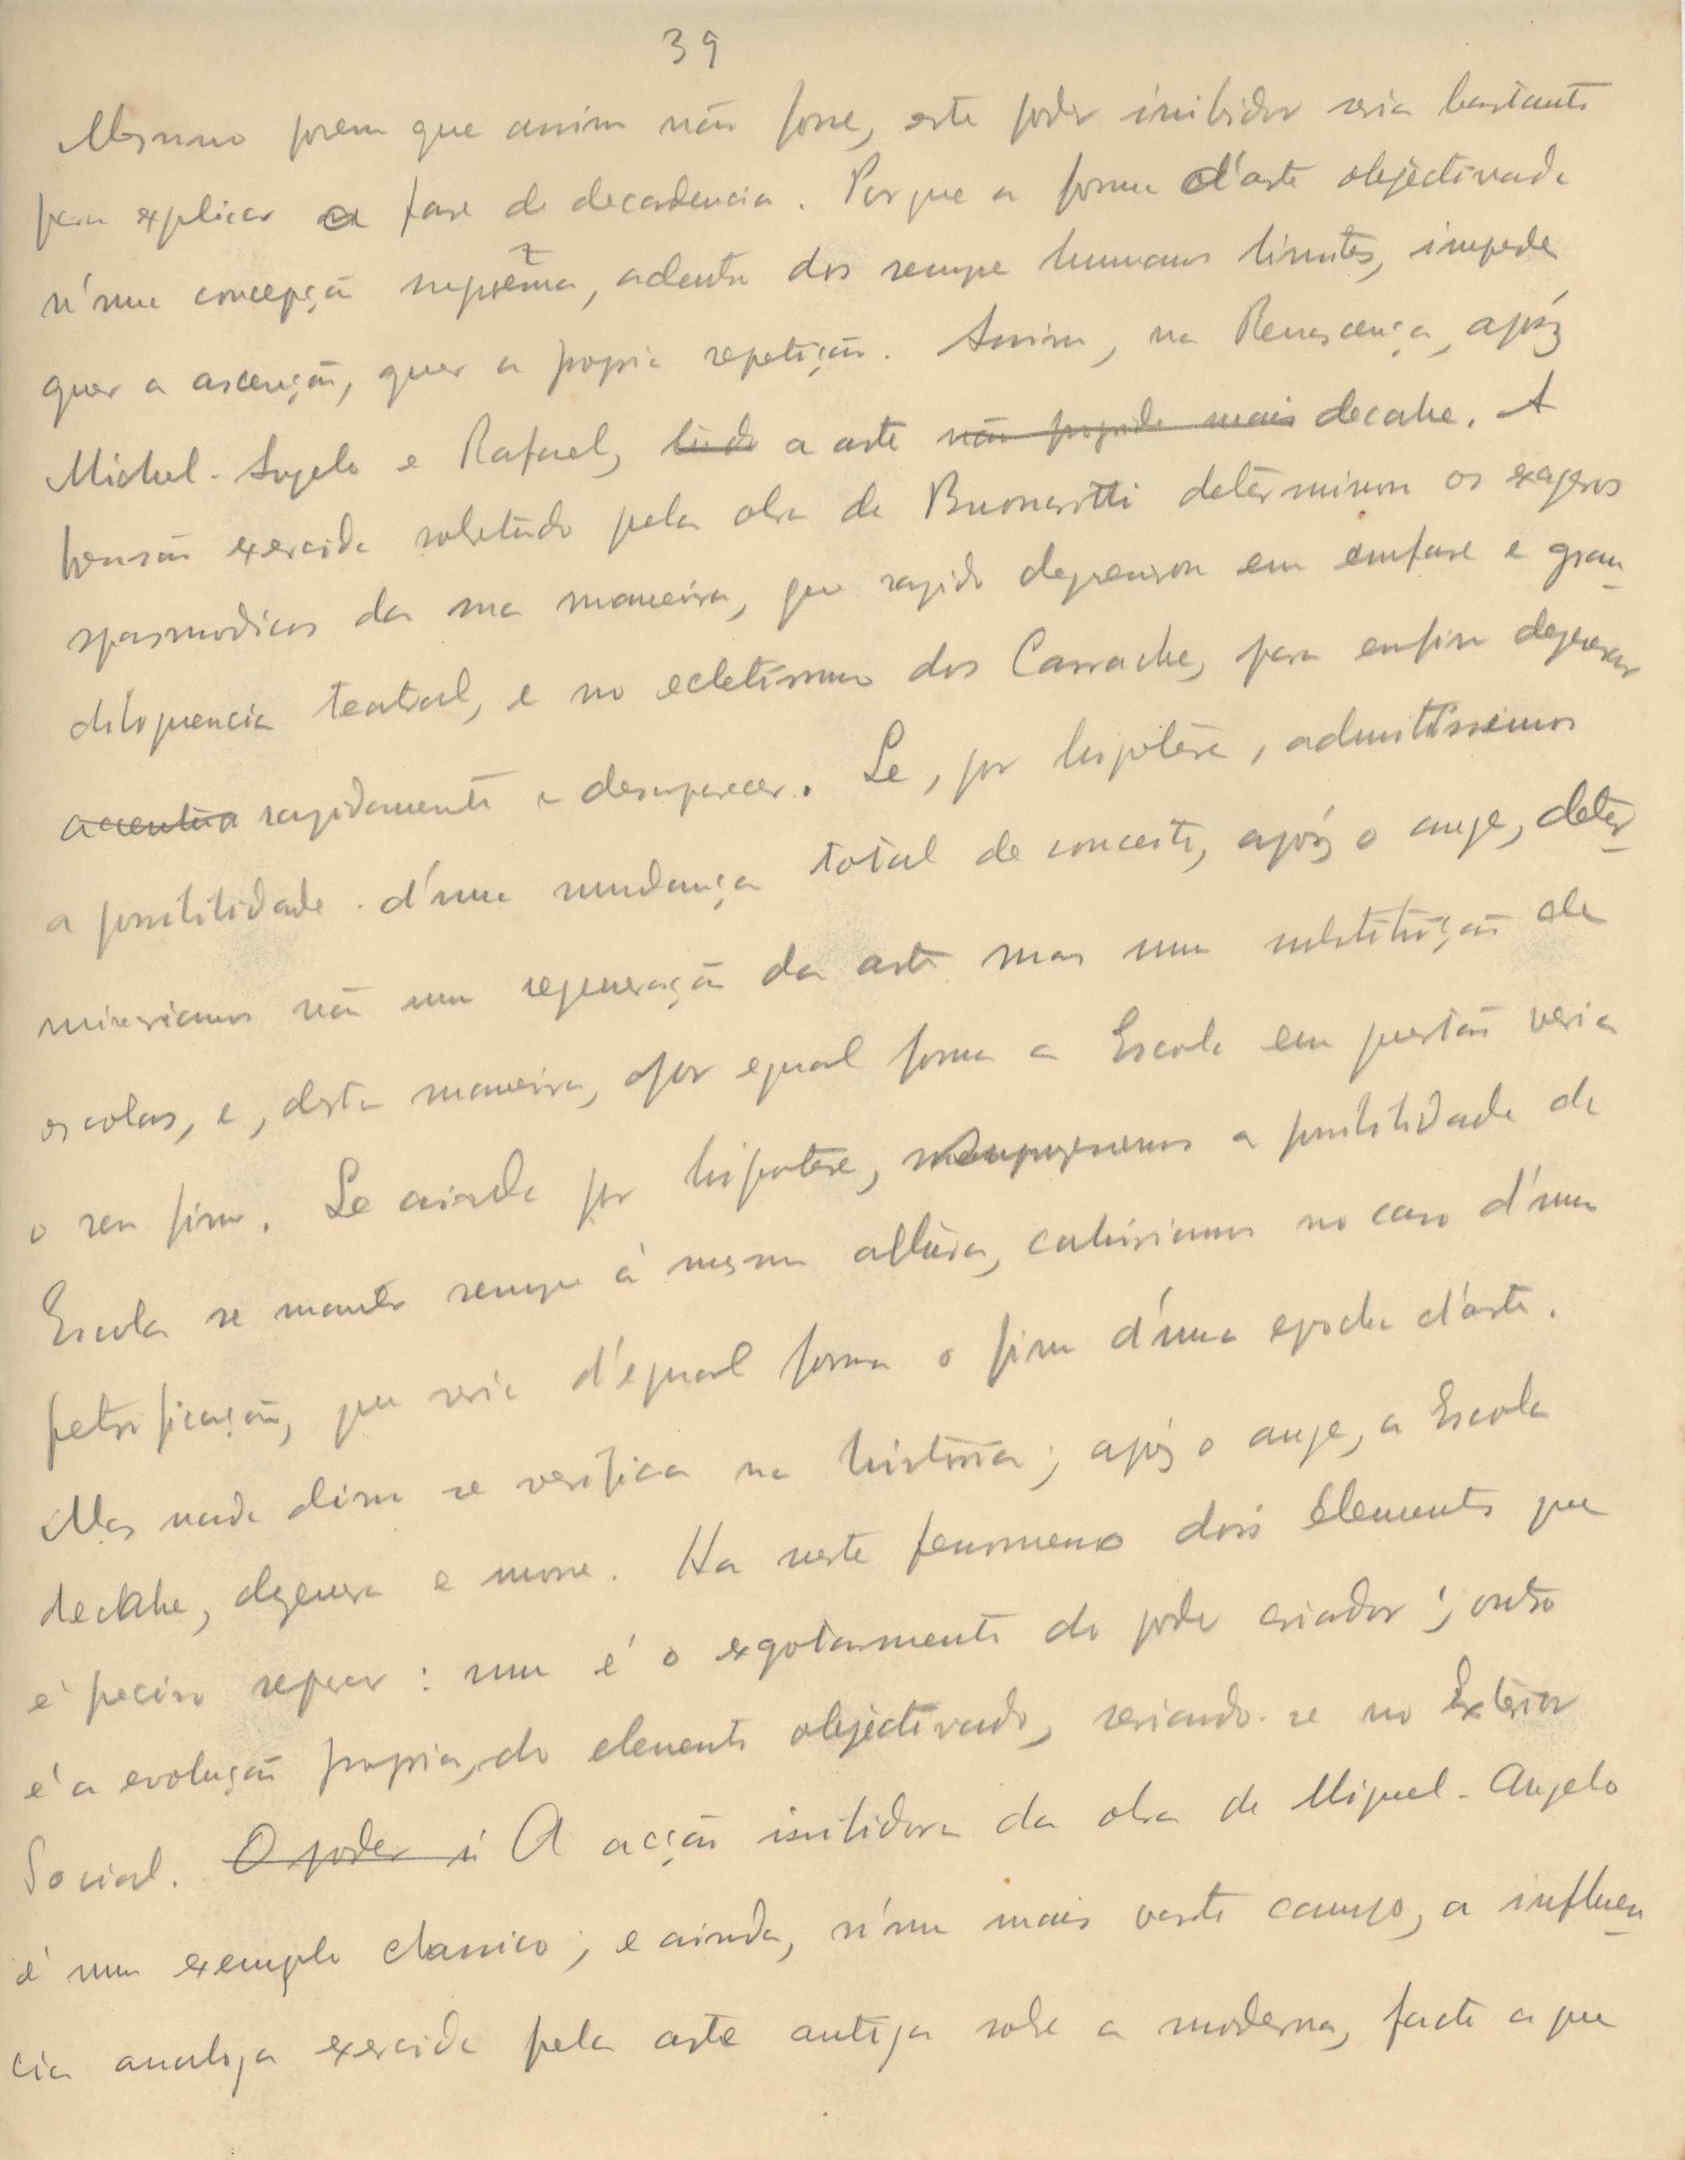 39
Mesmo porem que assim não fosse, este poder inibidor seria bastante
para explicar a fase de decadencia. Porque a forma d'arte objectivada
n'uma concepção suprema, adentro dos sempre humanos limites, impede
quer a ascenção, quer a propria repetição. Assim, na Renascença, após
Michel-Angelo e Rafael, tudo a arte não progride mais decahe. A
pressão exercida sobretudo pela obra de Buonarotti determinou os exageros
spasmodicos da sua maneira, que rapido degenerou em emfase e gran-
diloquencia teatral, e no ecletismo dos Carrache, para enfim degenerar
accentua rapidamente e desaparecer. Se, por hipótese, admitissimos
a possibilidade d'uma mudança total de conceito, após o auge, deter-
minariamos não uma regeneração da arte mas uma substituição de
escolas, e, desta maneira, por egual forma a Escola em questão veria
o seu fim. Se ainda por hipotese, supuzessemos a possibilidade de
Escola se manter sempre á mesma altura, cahiriamos no caso d'uma
petrificação, que seria d'egual forma o fim d'uma epocha d'arte.
Mas nada disso se verifica na historia; após o auge, a Escola
decahe, degenera e morre. Ha neste fenomeno dois elementos que
é preciso separar: um é o exgotamento do poder criador; outro
é a evolução propria, do elemento objectivado, seriando-se no Exterior
Social. O poder i A acção inibidora da obra de Miguel-Angelo
é um exemplo classico; e ainda, n'um mais vasto campo, a influen-
cia analoga exercida pela arte antiga sobre a moderna, facto a que